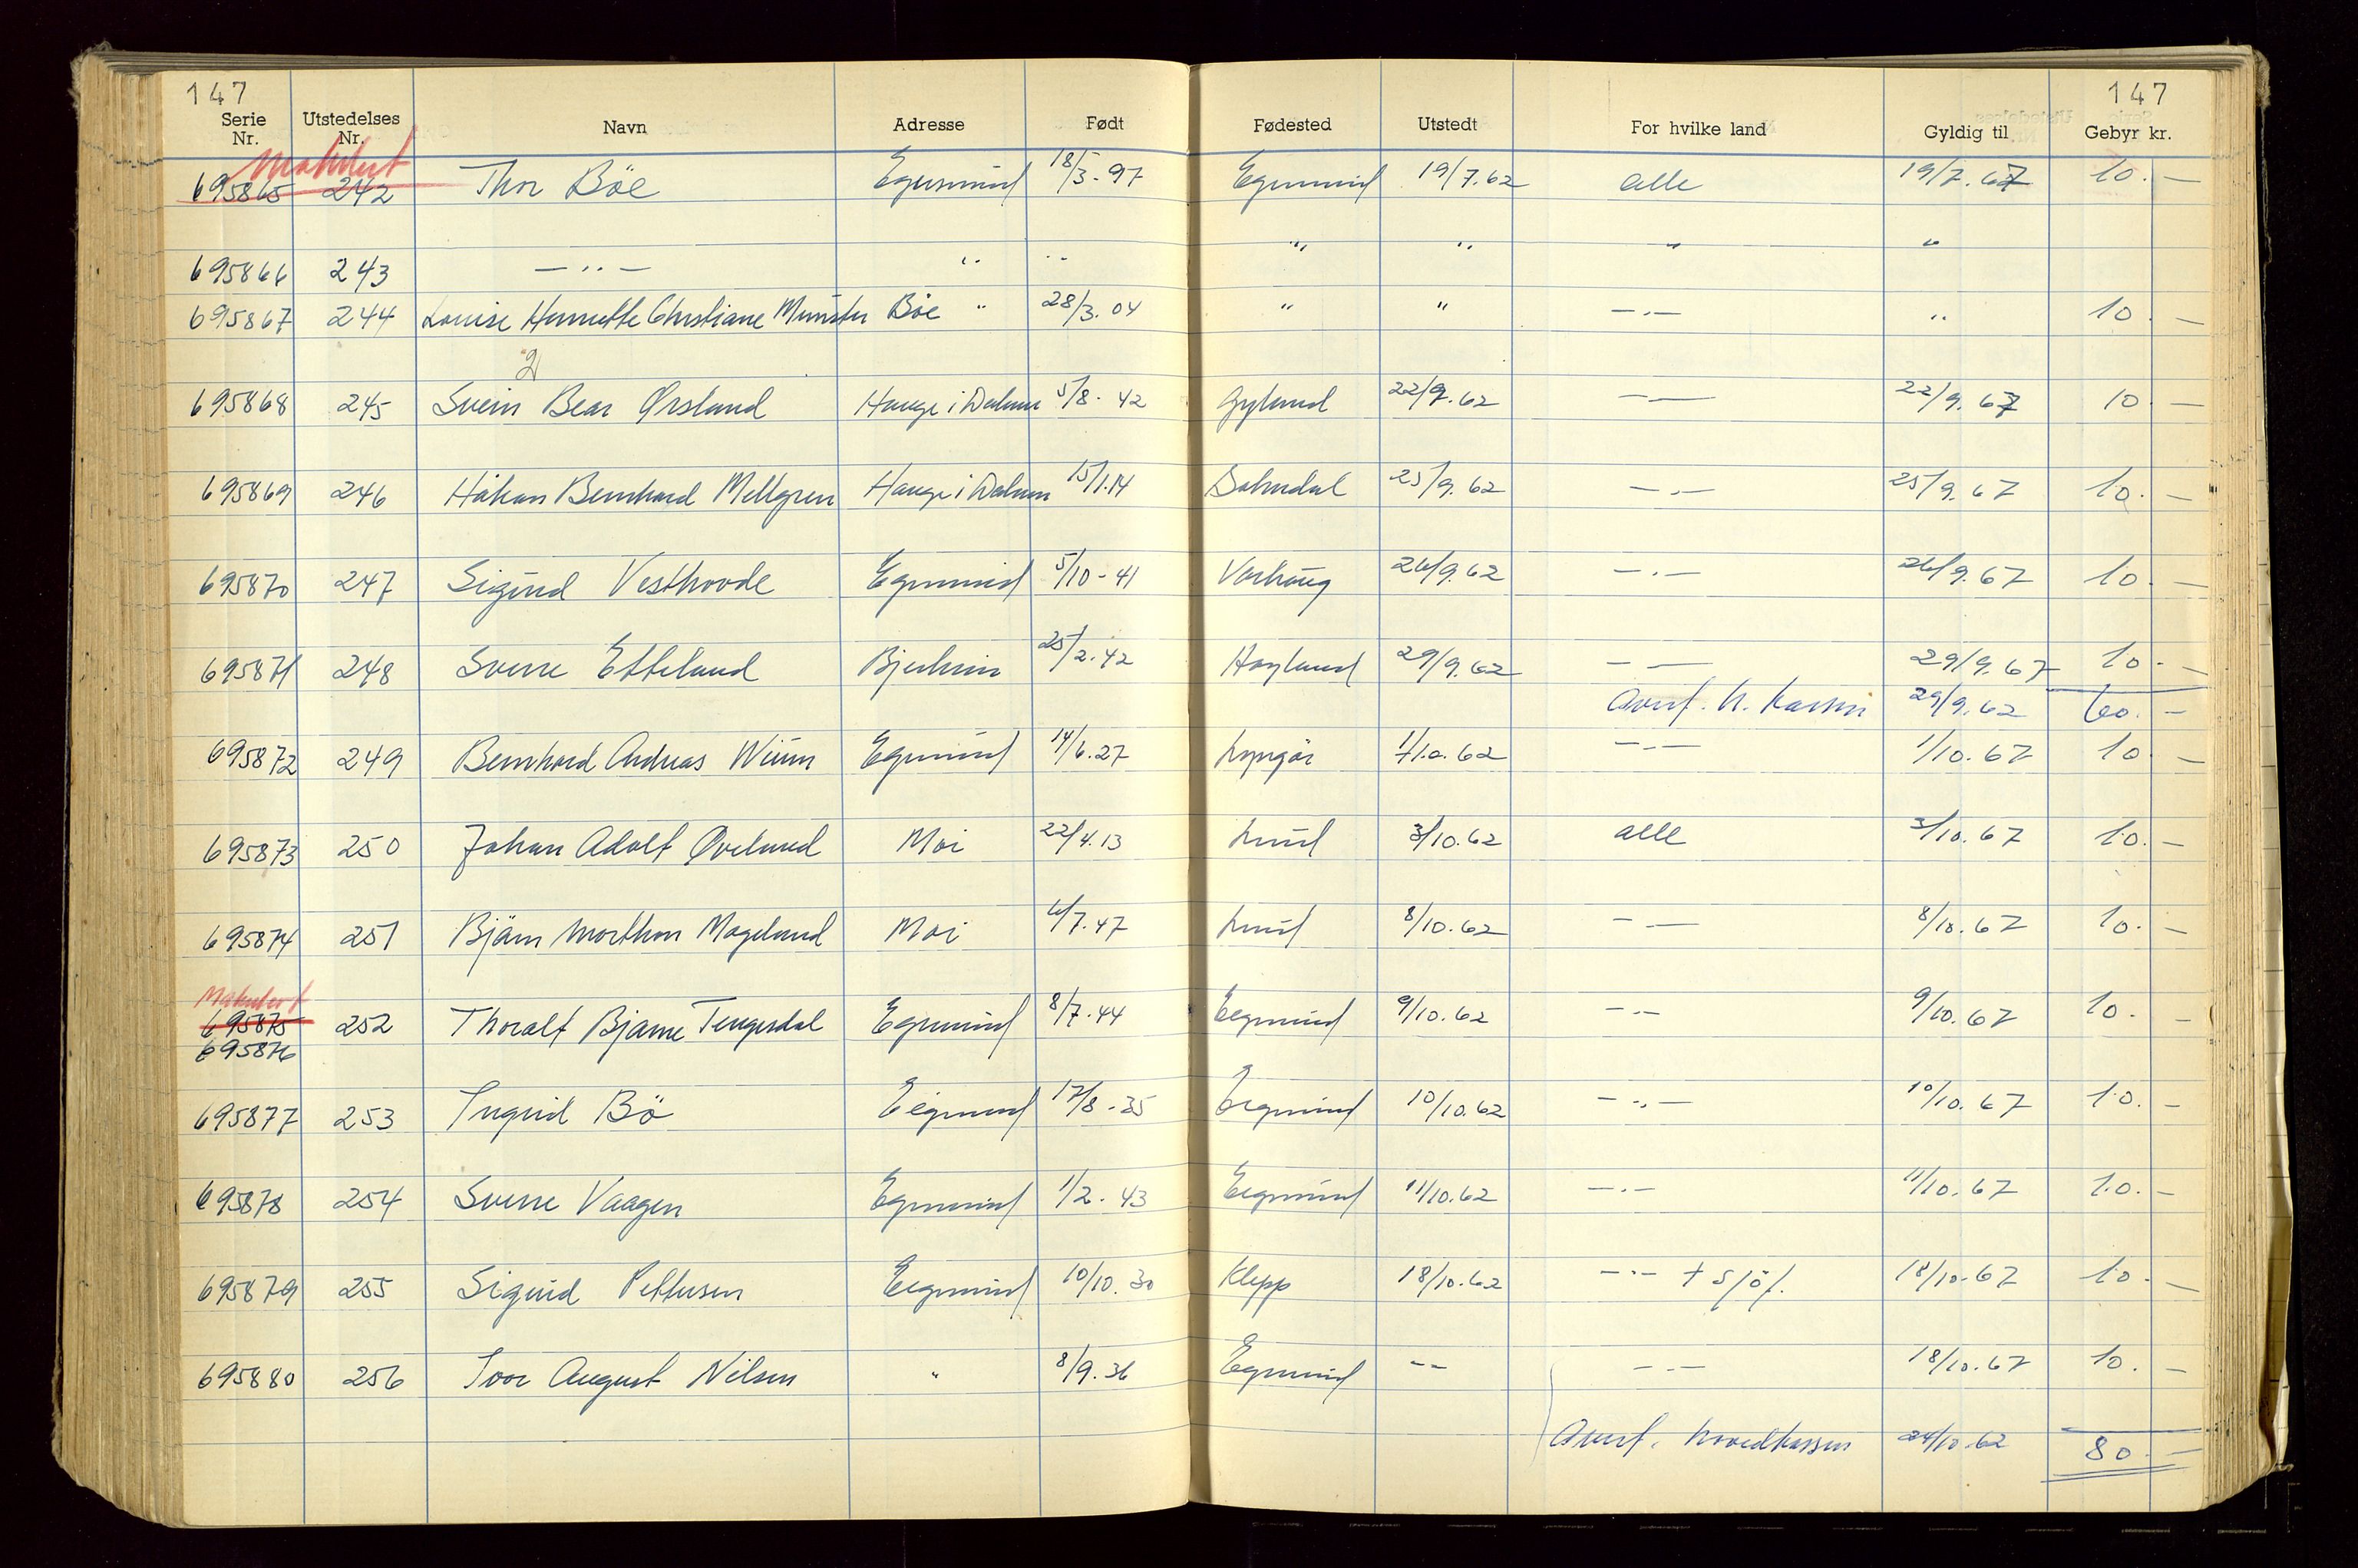 147 147
Serie Nr. Utstedelses Nr. Navn Adresse Født Fødested Utstedt For hvilke land Gyldig til Gebyr kr.
Makulert
695865 242 Thor Böe Egersund 18/3-97 Egersund 19/7.62 alle 19/7.67 10.—
695866 243 —"— " " " " " "
695867 244 Louise Henriette Christiane Münster Böe " 28/3.04 " " —"— " 10.—
2
695868 245 Svein Bear Ørsland Hauge i Dalane 5/8-42 Gyland 22/9.62 —"— 22/9.67 10.—
695869 246 Håkan Bernhard Mellgren Hauge i Dalane 15/1.14 Sokndal 25/9.62 —"— 25/9.67 10.—
695870 247 Sigurd Vesthovde Egersund 5/10-41 Varhaug 26/9.62 —"— 26/9.67 10.—
695871 248 Sverre Etteland Bjerkreim 25/2.42 Høyland 29/9.62 —"— 29/9.67 10.—
29/9.62 60.—
695872 249 Bernhard Andreas Wium Egersund 14/6.27 Lyngør 1/10.62 —"— 1/10.67 10.—
695873 250 Johan Adolf Øvelund Moi 22/4.13 Lund 3/10.62 alle 3/10.67 10.—
695874 251 Bjärn Morthon Mageland Moi 6/7.47 Lund 8/10.62 —"— 8/10.67 10.—
Makulert
695875 252 Thoralf Bjarne Tengesdal Egersund 8/7.44 Eegersund 9/10.62 —"— 9/10.67 10.—
695876
695877 253 Ingrid Bö Eigersund 17/8-35 Eegersund 10/10.62 —"— 10/10.67 10.—
695878 254 Sverre Vaagen Egersund 1/2-43 Eegersund 11/10.62 —"— 11/10.67 10.—
695879 255 Sigurd Pettersen Eegersund 10/10.30 Klepp 18/10.62 —"— + sjö/. 18/10.67 10.—
695880 256 Ivar August Nilsen " 8/9.36 Egersund -- —"— 18/10.67 10.—
Overf. hovedkassen 24/10.62 80.—